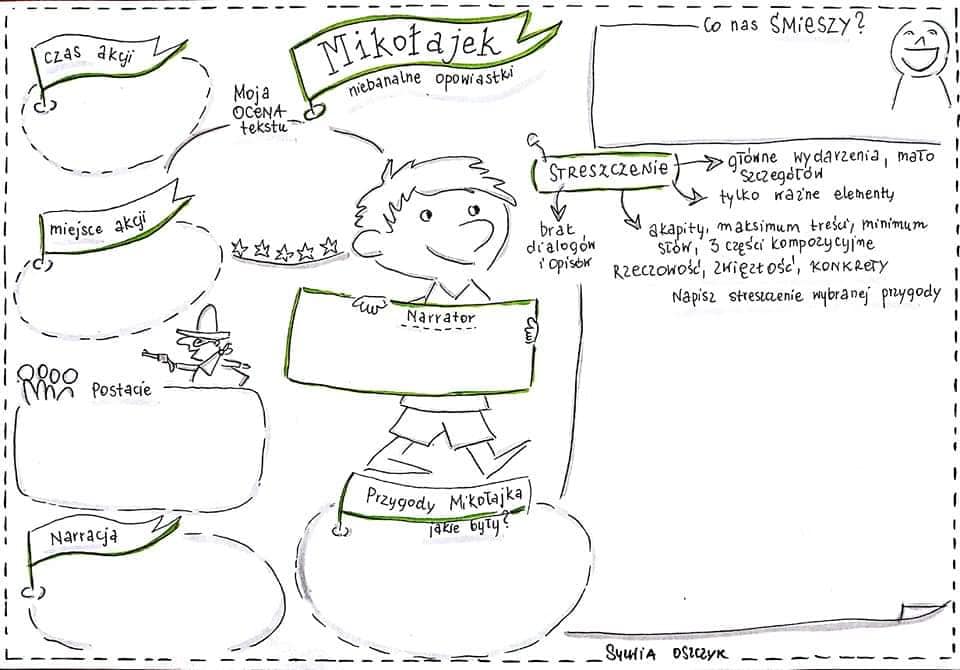 czas akcji
Mikołajek
niebanalne opowiastki
Moja
OCENA
tekstu
Co nas ŚMIESZY?
miejsce akcji
STRESZCZENIE
główne wydarzenia, mało
szczegółów
tylko ważne elementy
brak
dialogów
i opisów
akapity, maksimum treści, minimum
słów, 3 części kompozycyjne
RZECZOWOŚĆ, ZWIĘZŁOŚĆ, KONKRETY
Napisz streszczenie wybranej przygody
Narrator
Postacie
Narracja
Przygody Mikołajka
jakie były?
Sylwia Oszczyk